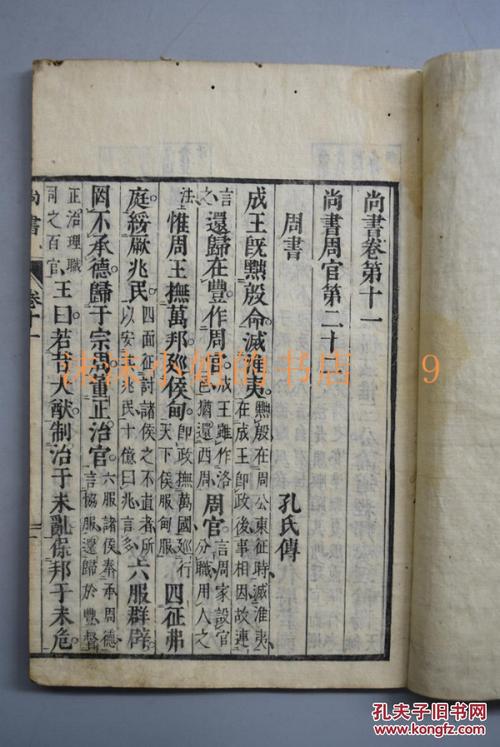 尚書卷第十一
尚書周官第二十
周書
孔氏傳
成王既黜殷命滅淮夷
黜殷在周公東征時滅淮夷
在成王即政後事相因故連
言
之
還歸在豐作周官
成王雖作洛
邑猶還西周
周官
言周家設官
分職用人之
法
惟周王撫萬邦廵侯甸
即政撫萬國廵行
天下侯服甸服
四征弗
庭綏厥兆民
四面征討諸侯之不直者所
以安其兆民十億曰兆言多
六服群辟
罔不承德歸于宗周董正治官
六服諸侯奉承周德
言協服還歸於豐督
正治理職
司之百官
王曰若昔大猷制治于未亂保邦于未危
尚書
卷十一
沫沫小姐的书店
9
孔夫子旧书网
www.kongfz.com